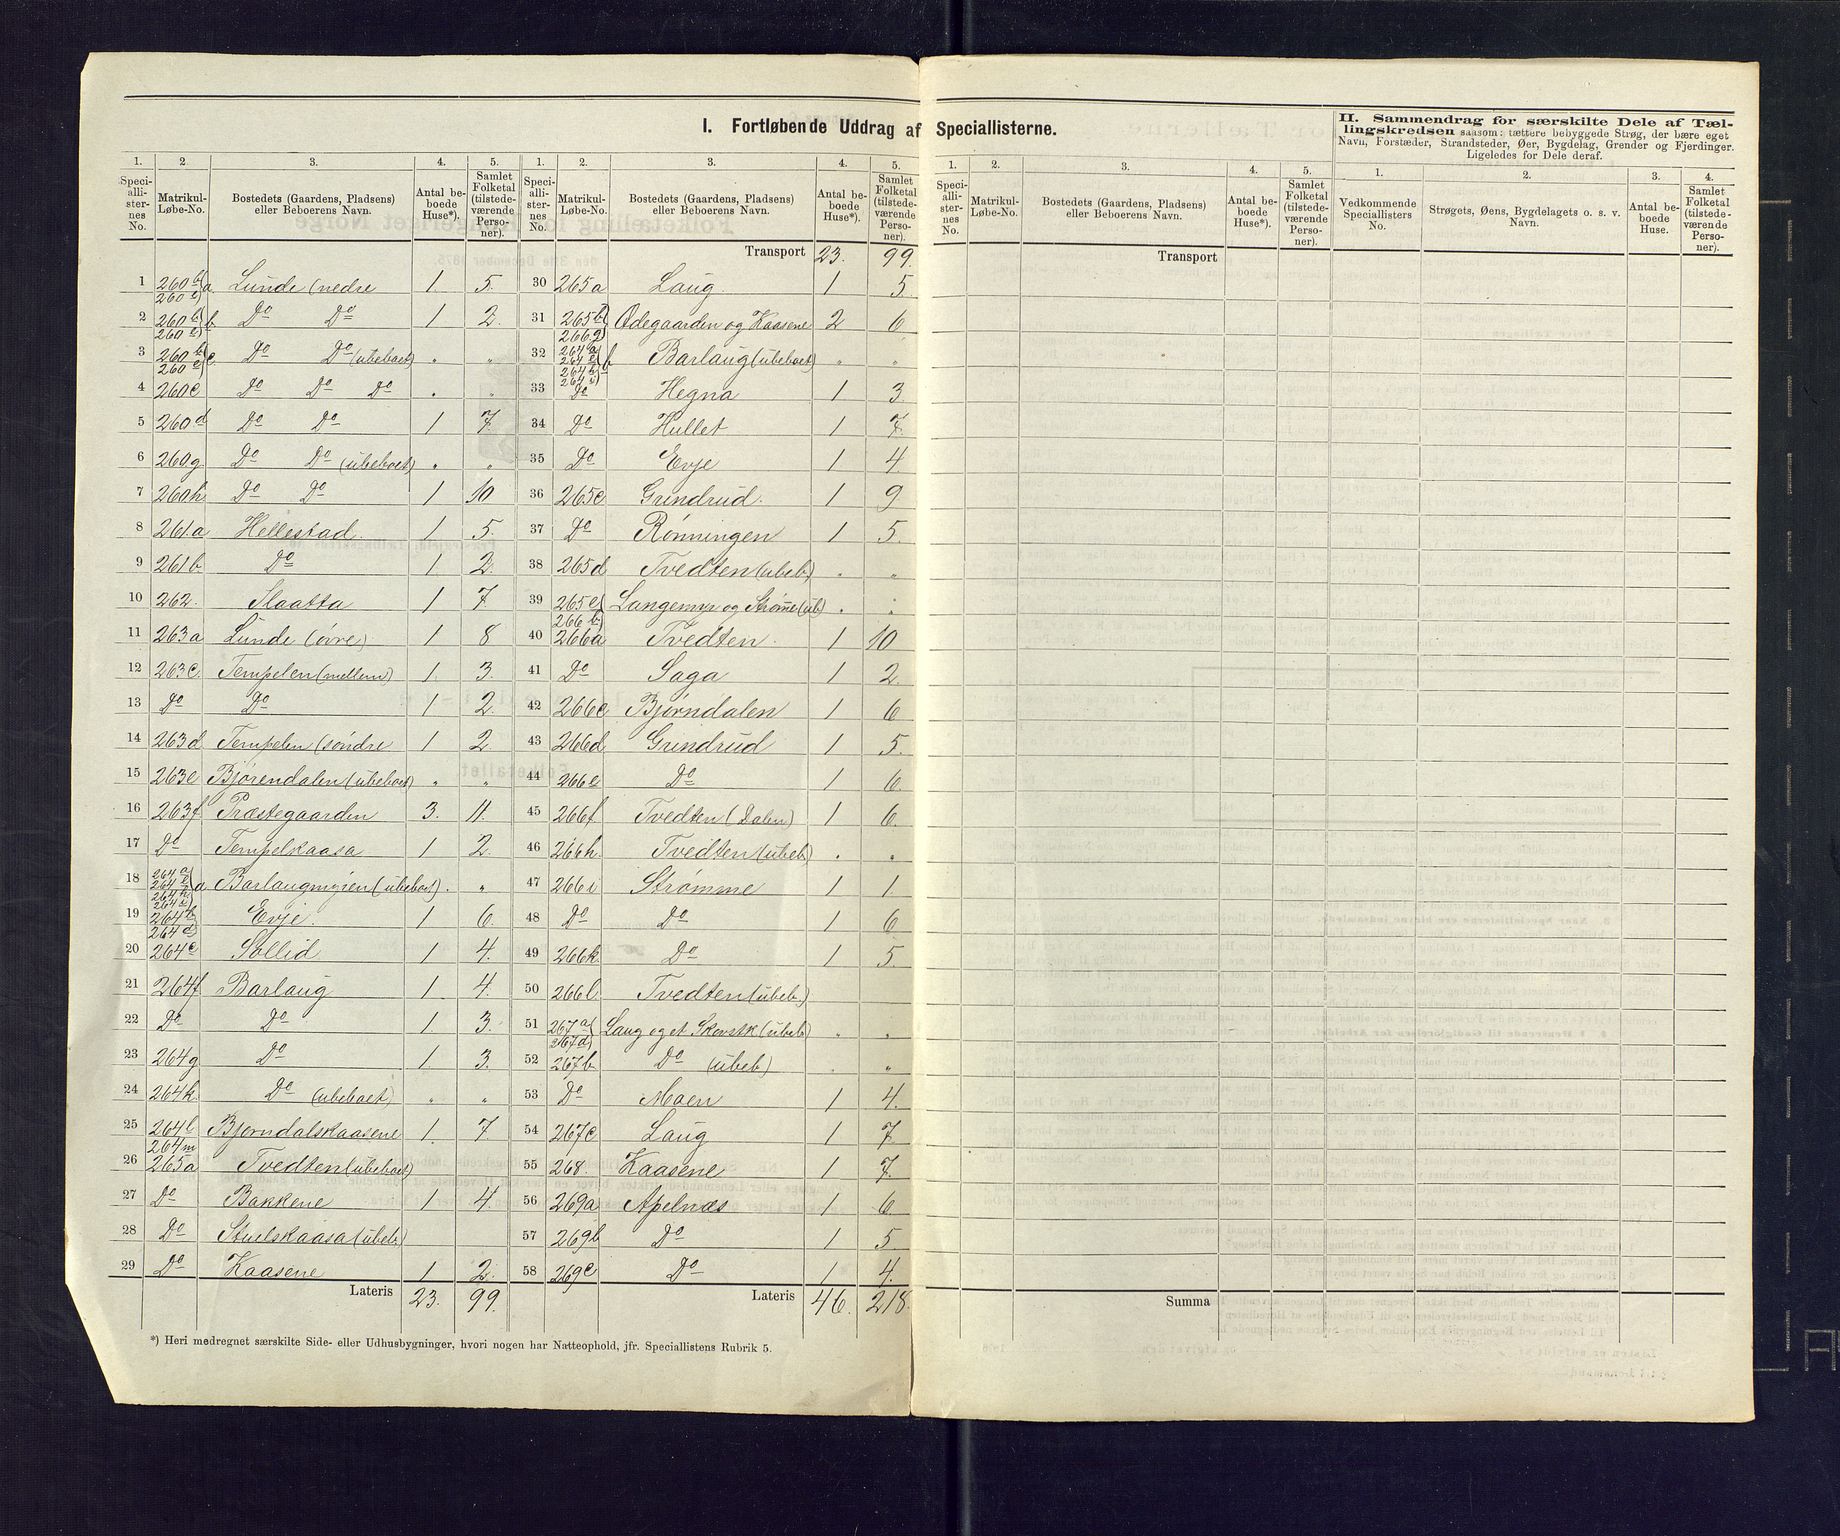 I. Fortløbende Uddrag af Speciallisterne.
II. Sammendrag for særskilte Dele af Tællingskredsen saasom: tættere bebyggede Strøg, der bære eget Navn, Forstæder, Strandsteder, Øer, Bygdelag, Grender og Fjerdinger. Ligeledes for Dele deraf.
1. 2 3. 4. 5. 1. 2. 3. 4. 5.
Speciallisternes No. Matrikul-Løbe-No. Bostedets (Gaardens, Pladsens) eller Beboerens Navn. Antal beboede Huse*). Samlet Folketal (tilstedeværende Personer).
Speciallisternes No. Matrikul-Løbe-No. Bostedets (Gaardens, Pladsens) eller Beboerens Navn. Antal beboede Huse*). Samlet Folketal (tilstedeværende Personer).
1 260b 260e) a Lunde (nedre 1. 5.
2 260b 260e) b Do Do 1 2.
3 260b 260e) c Do Do (ubeboet) " "
4 260c Do Do Do " "
5 260d Do Do 1 7.
6 260g Do Do (ubeboet) " "
7 260h. Do Do 1 10
8 261.a Hellestad. 1 5.
9 261b. Do 1 2.
10 262. Slaatta 1 7
11 263a Lunde (øvre) 1 8
12 263c. Tempelen (mellem) 1. 3.
13 Do Do 1 2.
14 263d Tempelen (søndre 1 2.
15 263e Bjørendalen (ubeboet) " "
16 263f Præstegaarden 3. 11.
17 Do Tempelkaasa 1 2.
18 264a a. Barlaugmyren (ubeboet) . "
19 264b 264d) Evje. 1 6.
20 264c Sollid 1 4.
21 264f Barlaug 1 4.
22 Do Do 1 3.
23 264g Do 1 3.
24 264k. Do (ubeboet) " "
25 264l 264m Bjørndalskaasene 1. 7
26 265a Tvedten (ubeboet)
27 Do Bakkene 1 4
28 Do Stuelskaasa (ubeb.)
29 Do Kaasene 1 2.
Lateris 23. 99.
Transport 23. 99.
30 265a Laug 1 5.
31 265b 266g) Ødegaarden og Kaasene 2 6
32 264a b Barlaug (ubeboet) "
33 Do Hegna 1 3.
34 Do Hullet 1 7.
35 Do Evje 1 4.
36 265c Grindrud. 1 9
37 Do Rønningen 1 5.
38 265d Tvedten (ubeb.) . "
39 265e 266b) Langemyr og Strømme (ub) .
40 266a Tvedten. 1 10
41 Do Saga 1 2.
42 266c Bjørndalen 1 6
43 266d Grindrud 1 5.
44 266e Do 1 6.
45 266f Tvedten (Dalen) 1 6.
46 266h. Tvedten (ubeb.) . "
47 266i Strømme 1 1.
48 Do Do 1 6
49 266k. Do 1 5.
50 266l Tvedten (ubeb.)
51 267a 267d) Laug og et Skovstk (ubeb) " "
52 267b Do (ubeb) . "
53 Do Moen 1 4.
54 267c Laug 1 7
55 268. Kaasene 1 7.
56 269a Apelnæs 1 6
57 269b Do 1 5
58 269c Do 1 4.
Lateris 46. 218.
*) Heri medregnet særskilte Side- eller Udhusbygninger, hvori nogen har Natteophold, jfr. Speciallistens Rubrik 5.
1. 2. 3. 4. 5. 1. 2. 3. 4.
Speciallisternes No. Matrikul-Løbe-No. Bostedets (Gaardens, Pladsens) eller Beboerens Navn. Antal beboede Huse*). Samlet Folketal (tilstedeværende Personer).
Vedkommende Speciallisters No. Strøgets, Øens, Bygdelagets o. s. v. Navn. Antal beboede Huse. Samlet Folketal (tilstedeværende Personer).
Transport
Summa